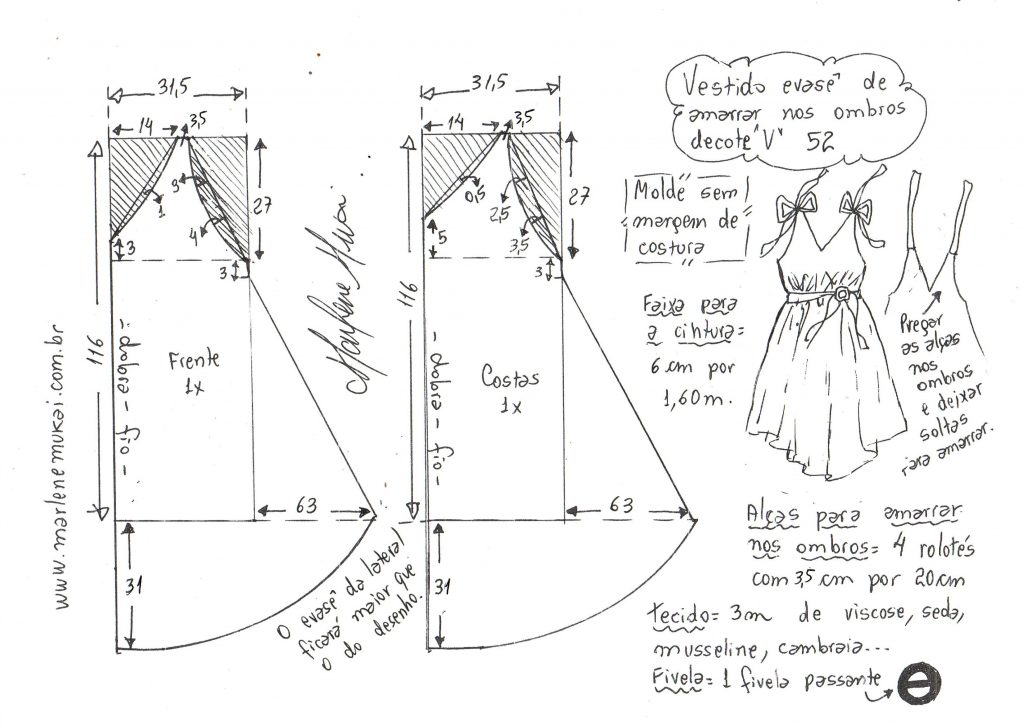 Vestido evasê de
amarrar nos ombros
decote "V" 52
Molde sem
margem de
costura
Faixa para
a cintura=
6 cm por
1,60m.
Pregar
as alças
nos
ombros
e deixar
soltas
para amarrar.
31,5
14
3,5
1
3
4
27
3
3
116
- dobra - fio -
Frente
1x
63
31
31,5
14
3,5
0,5
2,5
3,5
27
5
3
116
- dobra - fio -
Costas
1x
63
31
Marlene Mukai
www.marlenemukai.com.br
O evasê da lateral
ficará maior que
o do desenho.
Alças para amarrar
nos ombros= 4 rolotés
com 3,5 cm por 20cm
Tecido= 3m de viscose, seda,
musseline, cambraia...
Fivela= 1 fivela passante